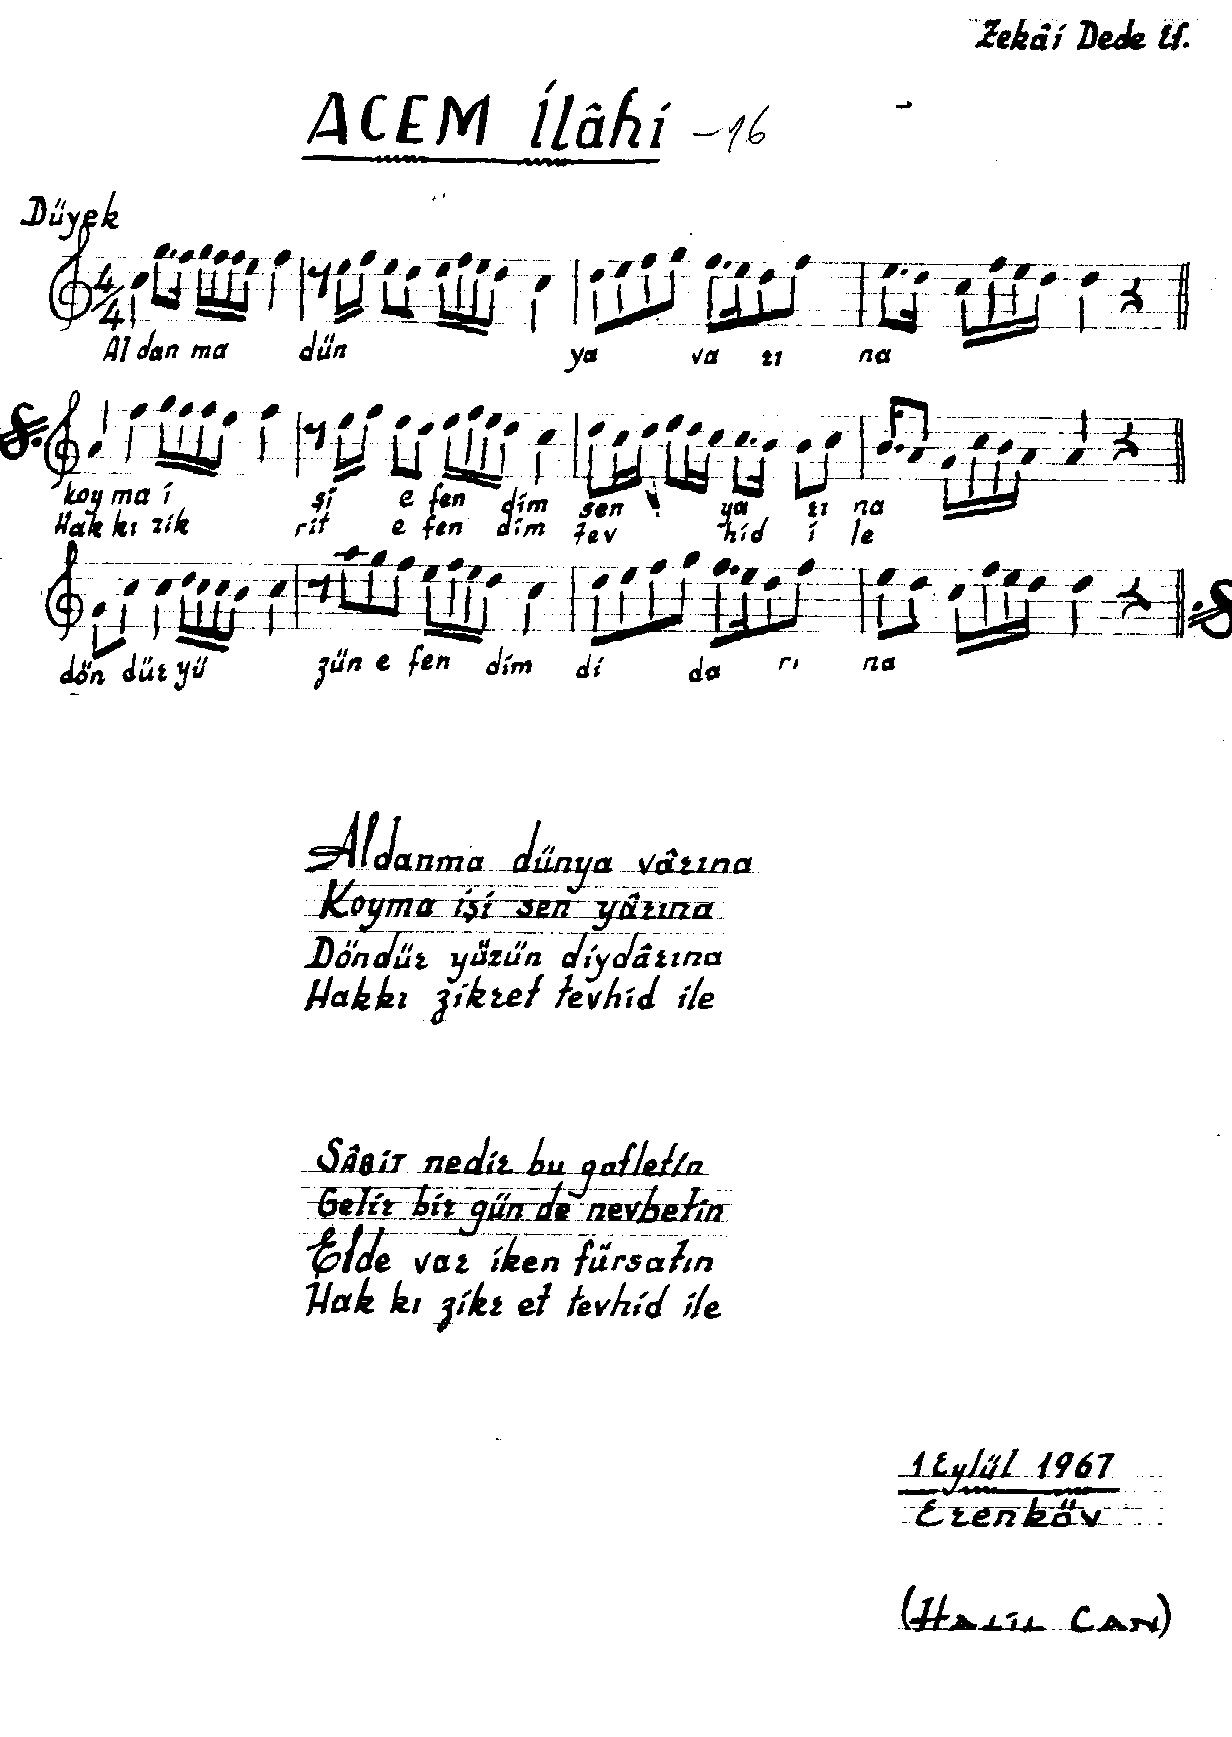 Zekâi Dede Ef.
ACEM İlâhi -16
Düyek
4/4
Al dan ma dün ya va rı na
koy ma i şi e fen dim sen ya rı na
Hak kı zik rit e fen dim tev hid i le
dön dür yü zün e fen dim di da rı na
Aldanma dünya vârına
Koyma işi sen yârına
Döndür yüzün diydârına
Hakkı zikret tevhid ile
SÂBİT nedir bu gafletin
Gelir bir gün de nevbetin
Elde var iken fürsatın
Hak kı zikr et tevhid ile
1 Eylül 1967
Erenköy
(HALİL CAN)